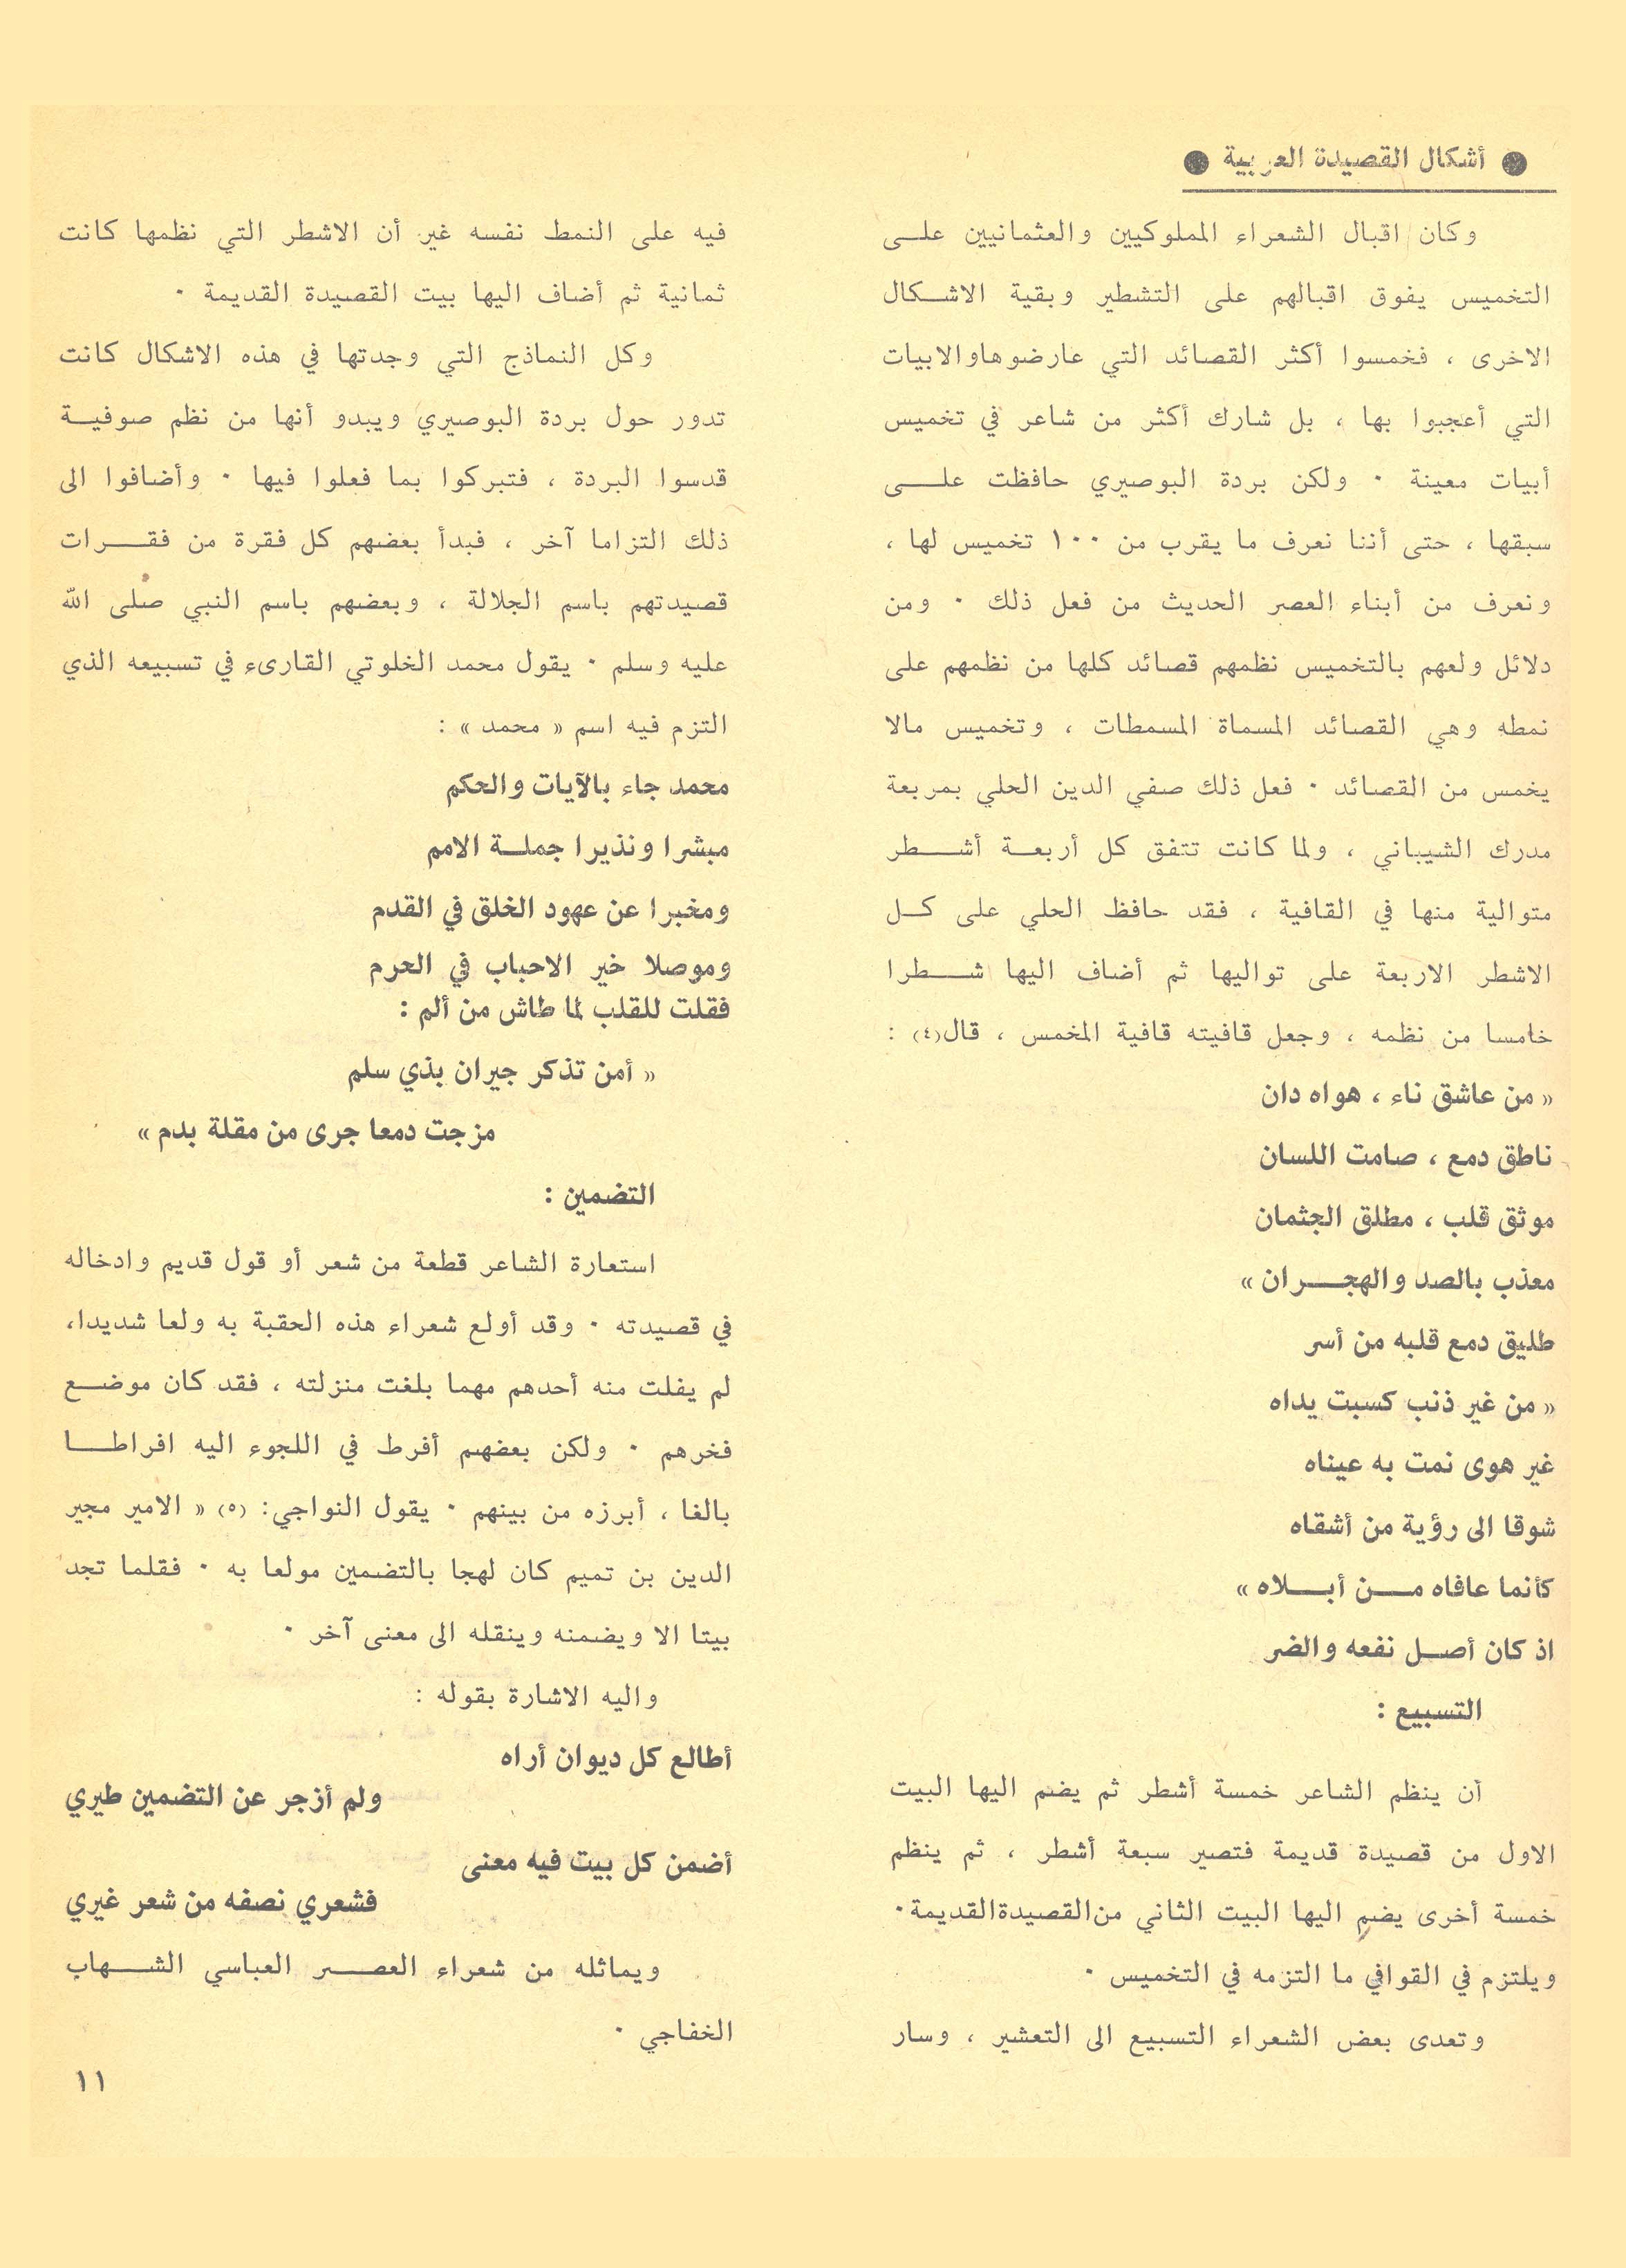 ● أشكال القصيدة العربية ●
وكان اقبال الشعراء المملوكيين والعثمانيين على
التخميس يفوق اقبالهم على التشطير وبقية الاشكال
الاخرى ، فخمسوا أكثر القصائد التي عارضوها والابيات
التي أعجبوا بها ، بل شارك أكثر من شاعر في تخميس
أبيات معينة ٠ ولكن بردة البوصيري حافظت على
سبقها ، حتى أننا نعرف ما يقرب من ١٠٠ تخميس لها ،
ونعرف من أبناء العصر الحديث من فعل ذلك ٠ ومن
دلائل ولعهم بالتخميس نظمهم قصائد كلها من نظمهم على
نمطه وهي القصائد المسماة المسمطات ، وتخميس مالا
يخمس من القصائد ٠ فعل ذلك صفي الدين الحلي بمربعة
مدرك الشيباني ، ولما كانت تتفق كل أربعة أشطر
متوالية منها في القافية ، فقد حافظ الحلي على كل
الاشطر الاربعة على تواليها ثم أضاف اليها شطرا
خامسا من نظمه ، وجعل قافيته قافية المخمس ، قال(٤) :
« من عاشق ناء ، هواه دان
ناطق دمع ، صامت اللسان
موثق قلب ، مطلق الجثمان
معذب بالصد والهجران »
طليق دمع قلبه من أسر
« من غير ذنب كسبت يداه
غير هوى نمت به عيناه
شوقا الى رؤية من أشقاه
كأنما عافاه من أبلاه »
اذ كان أصل نفعه والضر
التسبيع :
أن ينظم الشاعر خمسة أشطر ثم يضم اليها البيت
الاول من قصيدة قديمة فتصير سبعة أشطر ، ثم ينظم
خمسة أخرى يضم اليها البيت الثاني من القصيدة القديمة٠
ويلتزم في القوافي ما التزمه في التخميس ٠
وتعدى بعض الشعراء التسبيع الى التعشير ، وسار
فيه على النمط نفسه غير أن الاشطر التي نظمها كانت
ثمانية ثم أضاف اليها بيت القصيدة القديمة ٠
وكل النماذج التي وجدتها في هذه الاشكال كانت
تدور حول بردة البوصيري ويبدو أنها من نظم صوفية
قدسوا البردة ، فتبركوا بما فعلوا فيها ٠ وأضافوا الى
ذلك التزاما آخر ، فبدأ بعضهم كل فقرة من فقرات
قصيدتهم باسم الجلالة ، وبعضهم باسم النبي صلى الله
عليه وسلم ٠ يقول محمد الخلوتي القارىء في تسبيعه الذي
التزم فيه اسم « محمد » :
محمد جاء بالآيات والحكم
مبشرا ونذيرا جملة الامم
ومخبرا عن عهود الخلق في القدم
وموصلا خير الاحباب في الحرم
فقلت للقلب لما طاش من ألم :
« أمن تذكر جيران بذي سلم
مزجت دمعا جرى من مقلة بدم »
التضمين :
استعارة الشاعر قطعة من شعر أو قول قديم وادخاله
في قصيدته ٠ وقد أولع شعراء هذه الحقبة به ولعا شديدا،
لم يفلت منه أحدهم مهما بلغت منزلته ، فقد كان موضع
فخرهم ٠ ولكن بعضهم أفرط في اللجوء اليه افراطا
بالغا ، أبرزه من بينهم ٠ يقول النواجي: (٥) « الامير مجير
الدين بن تميم كان لهجا بالتضمين مولعا به ٠ فقلما تجد
بيتا الا ويضمنه وينقله الى معنى آخر ٠
واليه الاشارة بقوله :
أطالع كل ديوان أراه
ولم أزجر عن التضمين طيري
أضمن كل بيت فيه معنى
فشعري نصفه من شعر غيري
ويماثله من شعراء العصر العباسي الشهاب
الخفاجي ٠
١١